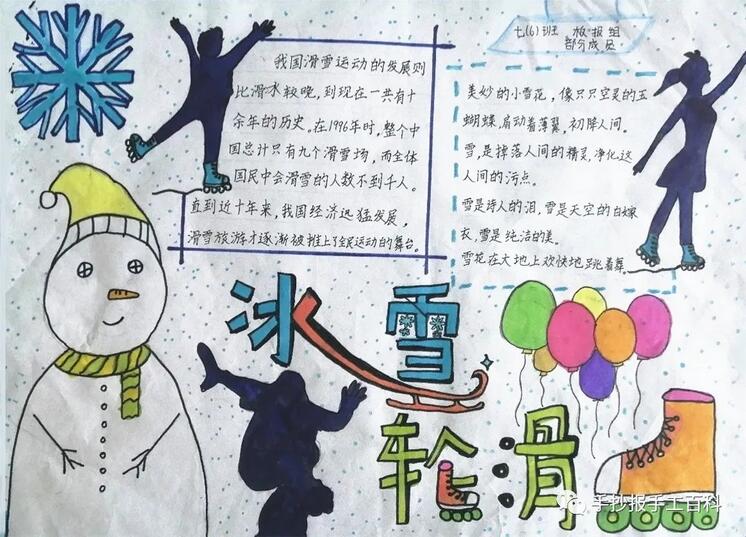 七(6)班 板报组
部分成员
我国滑雪运动的发展则
比滑水较晚,到现在一共有十
余年的历史。在1996年时,整个中
国总计只有九个滑雪场,而全体
国民中会滑雪的人数不到千人。
直到近十年来,我国经济迅猛发展,
滑雪旅游才逐渐被推上了全民运动的舞台。
美妙的小雪花,像只只空灵的玉
蝴蝶,扇动着薄翼,初降人间。
雪,是掉落人间的精灵,净化这
人间的污点。
雪是诗人的泪,雪是天空的白嫁
衣,雪是纯洁的美。
雪花在大地上欢快地跳着舞。
冰雪
轮滑
手抄报手工百科